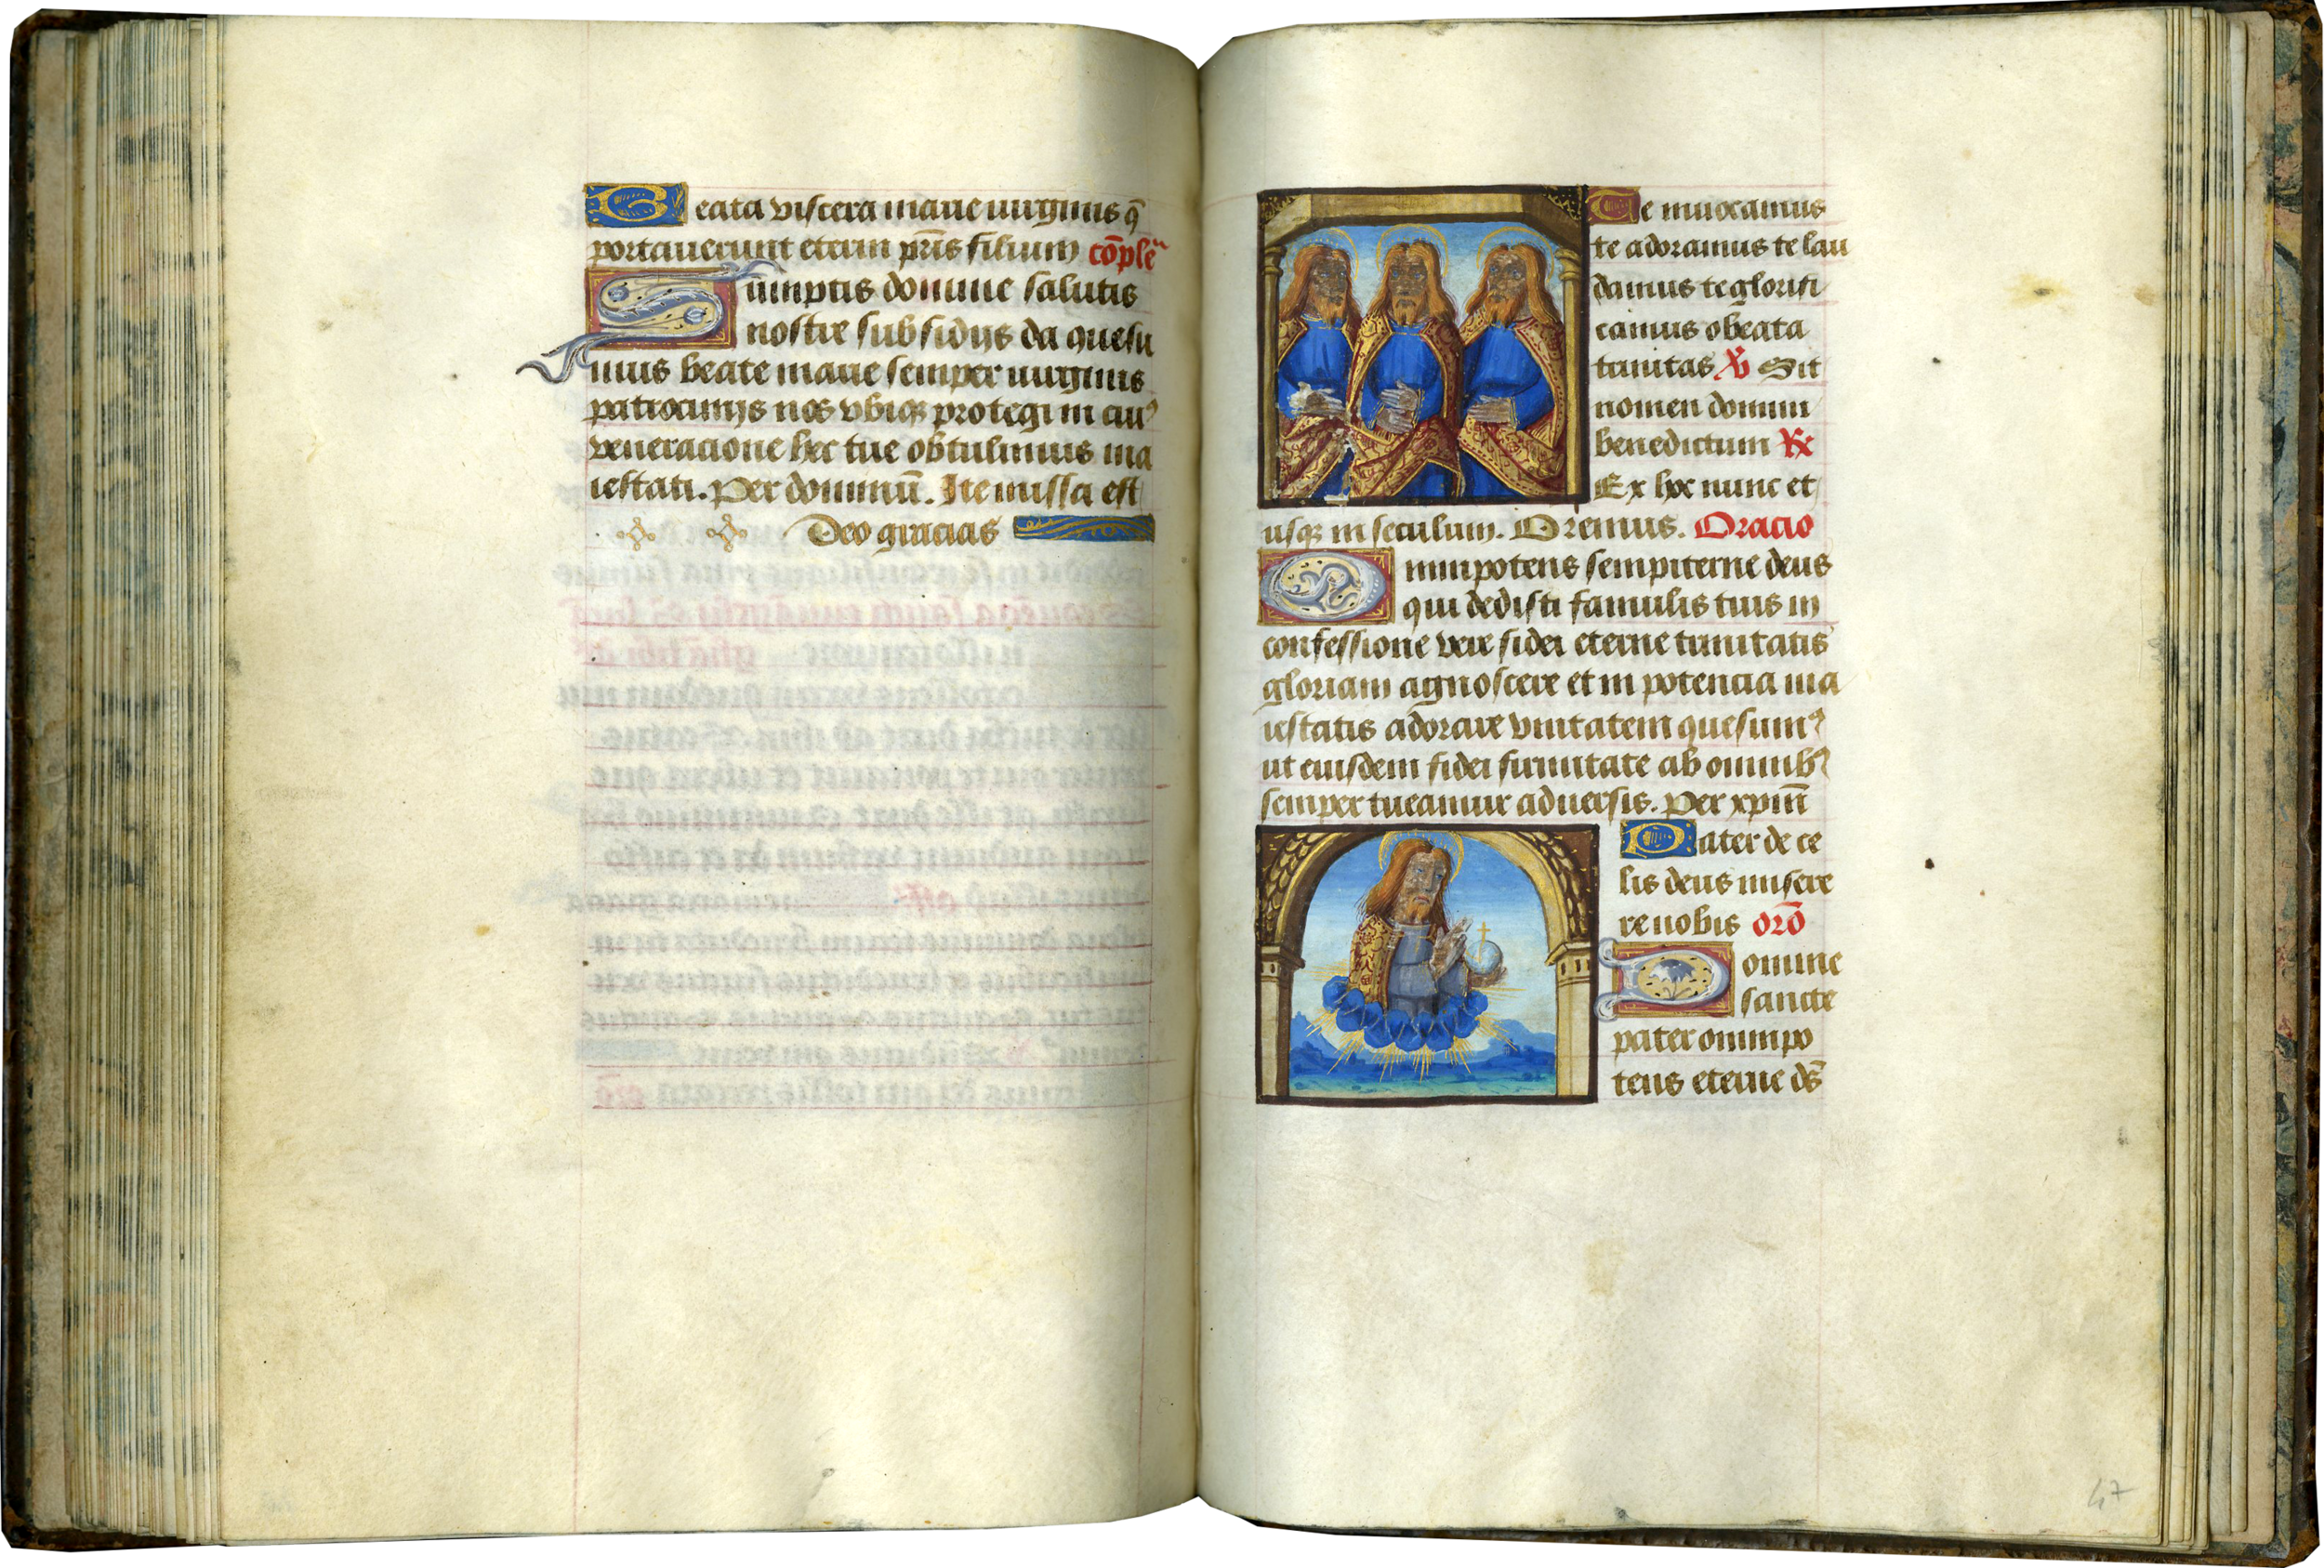 Beata viscera marie virginis q̄
portauerunt eterni pr̄is filium cōple᷑
Sumptis domine salutis
nostre subsidijs da quesu
mus beate marie semper virginis
patrocinijs nos vbiqꝫ protegi in cuiꝰ
veneracione hec tue obtulimus ma
iestati. Per dominū. Ite missa est
Deo gracias
Te inuocamus
te adoramus te lau
damus te glorifi
camus o beata
trinitas ℣ Sit
nomen domini
benedictum ℞
Ex hoc nunc et
usqꝫ in seculum. Oremus. Oracio
Omnipotens sempiterne deus
qui dedisti famulis tuis in
confessione vere fidei eterne trinitatis
gloriam agnoscere et in potencia ma
iestatis adorare vnitatem quesumꝰ
ut eiusdem fidei firmitate ab omnibꝰ
semper tueamur aduersis. Per xp̄m
Pater de ce
lis deus misere
re nobis orō
Domine
sancte
pater omnipo
tens eterne ds̄
47